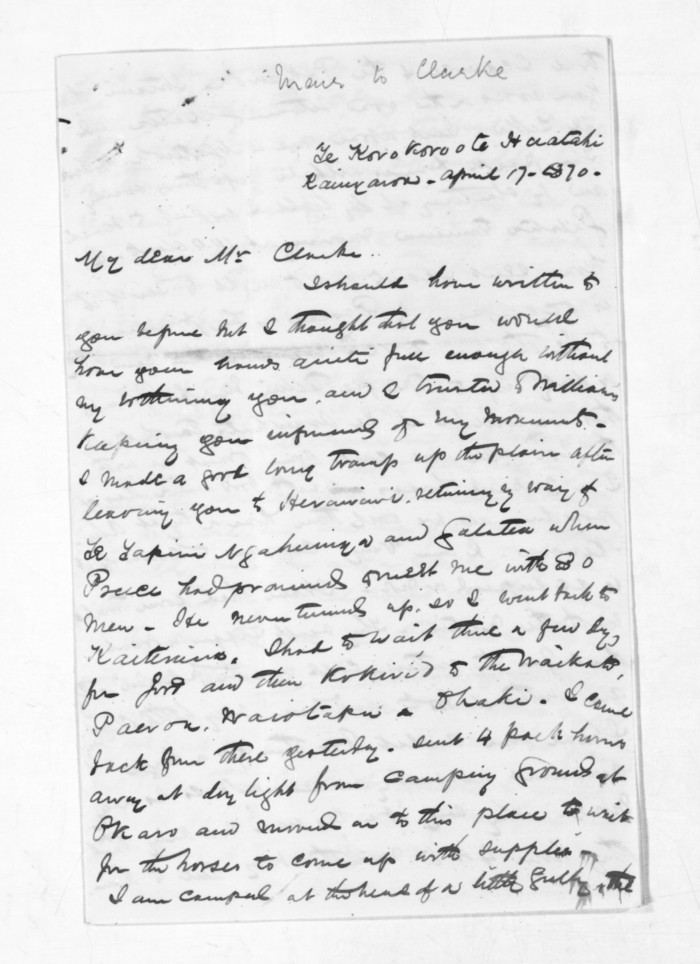 Mair to Clarke
Te Korokoro o te Huataki
Kaingaroa - April 17 - 1870 -
My dear Mr Clarke..
I should have written to
you before but I thought that you would
have your hands quite full enough without
my bothering you, and I trusted to Williams
keeping you informed of my movements -
I made a good long tramp up the plain after
leaving you to Heruiwi. returning by way of
Te Tapiri Ngahuinga and Galatea when
Preece had promised to meet me with 80
men - He never turned up, so I went back to
Kaiteriria. I had to wait there a few days
for food and then kokiri'd to the Waikato,
Paeroa, Waiotapu & Ohaki - I came
back from there yesterday - sent 4 pack horses
away at day light from camping ground at
Okaro and moved on to this place to wait
for the horses to come up with supplies
I am camped at the head of a little gully, the